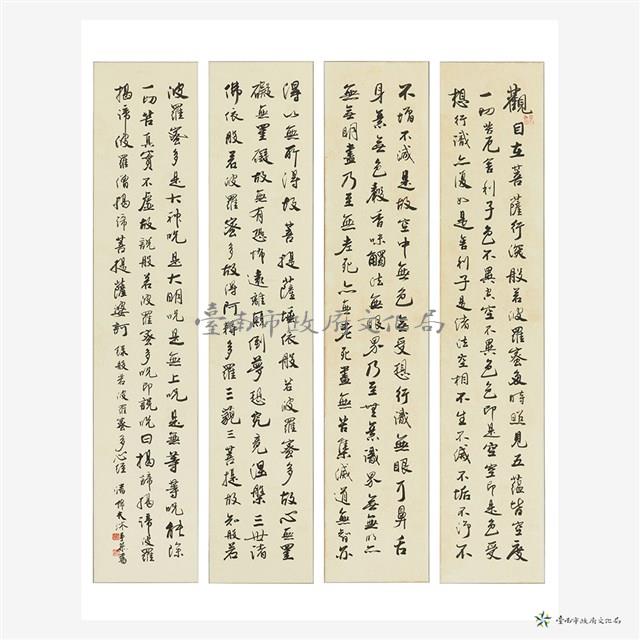 觀自在菩薩行深般若波羅蜜多時照見五蘊皆空度
一切苦厄舍利子色不異空空不異色色即是空空即是色受
想行識亦復如是舍利子是諸法空相不生不滅不垢不淨不
不增不減是故空中無色無受想行識無眼耳鼻舌
身意無色聲香味觸法無眼界乃至無意識界無無明亦
無無明盡乃至無老死亦無老死盡無苦集滅道無智亦
得以無所得故菩提薩埵依般若波羅蜜多故心無罣
礙無罣礙故無有恐怖遠離顛倒夢想究竟涅槃三世諸
佛依般若波羅蜜多故得阿耨多羅三藐三菩提故知般若
波羅蜜多是大神咒是大明咒是無上咒是無等等咒能除
一切苦真實不虛故說般若波羅蜜多咒即說咒曰揭諦揭諦波羅
揭諦波羅僧揭諦菩提薩婆訶 錄般若波羅蜜多心經
臺南市政府文化局
臺南市政府文化局